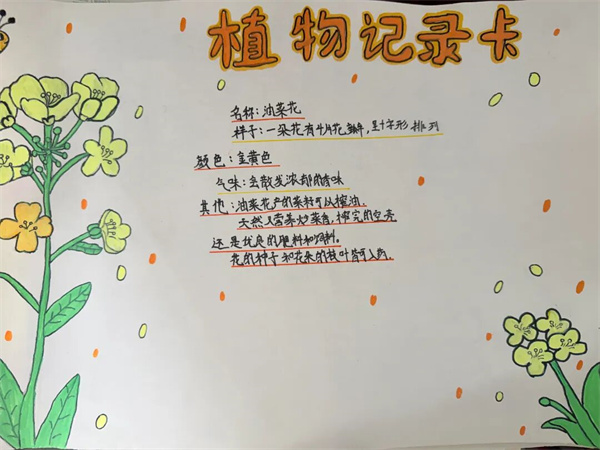 植物记录卡
名称：油菜花
样子：一朵花有4片花瓣，呈十字形排列
颜色：金黄色
气味：会散发浓郁的香味
其他：油菜花产的菜籽可以榨油，
天然又营养炒菜香，榨完的
还是优良的肥料和饲料。
花的种子和花朵的枝叶皆可入药。